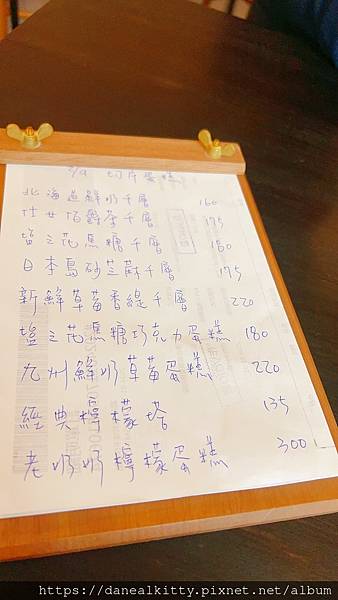 3/9 切片蛋糕
北海道鮮奶千層 160
仕女伯爵茶千層 175
鹽之花焦糖千層 180
日本島砂芝麻千層 175
新鮮草莓香緹千層 220
鹽之花焦糖巧克力蛋糕 180
九州鮮奶草莓蛋糕 220
經典檸檬塔 135
老奶奶檸檬蛋糕 300
https://danealkitty.pixnet.net/album